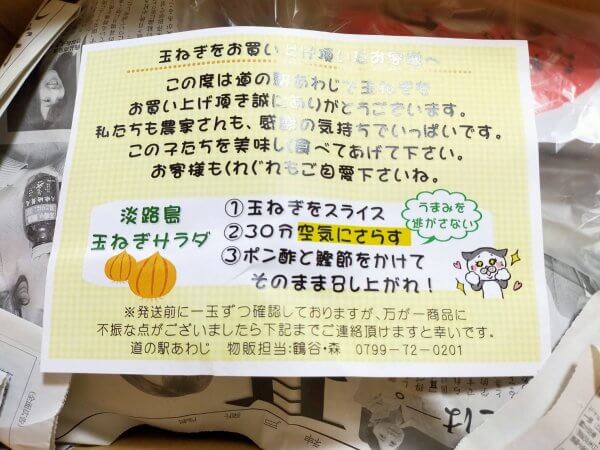 玉ねぎをお買い上げ頂いたお客様へ
この度は道の駅あわじで玉ねぎを
お買い上げ頂き誠にありがとうございます。
私たちも農家さんも、感謝の気持ちでいっぱいです。
この子たちを美味しく食べてあげて下さい。
お客様もくれぐれもご自愛下さいね。
淡路島
玉ねぎサラダ
①玉ねぎをスライス
②30分空気にさらす
③ポン酢と鰹節をかけて
そのまま召し上がれ!
うまみを
逃がさない
※発送前に一玉ずつ確認しておりますが、万が一商品に
不振な点がございましたら下記までご連絡頂けますと幸いです。
道の駅あわじ 物販担当:鶴谷・森 0799-72-0201